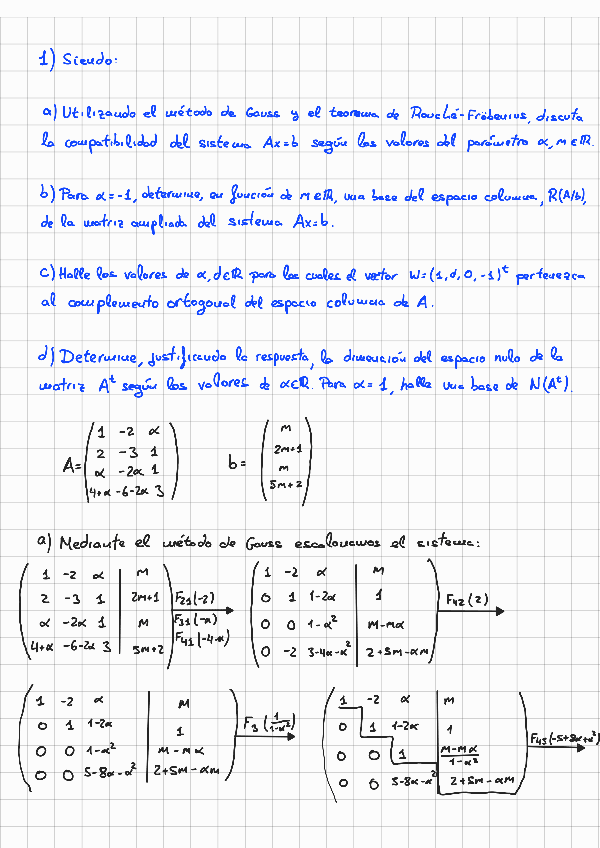 1) Siendo:
a) Utilizando el método de Gauss y el teorema de Rouché-Fröbenius, discuta
la compatibilidad del sistema Ax=b según los valores del parámetro α, m ∈ ℝ.
b) Para α = -1, determine, en función de m ∈ ℝ, una base del espacio columna, R(A/b),
de la matriz ampliada del sistema Ax=b.
c) Halle los valores de α, d ∈ ℝ para los cuales el vector W = (1, d, 0, -1)ᵗ pertenezca
al complemento ortogonal del espacio columna de A.
d) Determine, justificando la respuesta, la dimensión del espacio nulo de la
matriz Aᵗ según los valores de α ∈ ℝ. Para α = 1, halle una base de N(Aᵗ).
1 -2 α m
2 -3 1 2m+1
A= α -2α 1 b= m
4+α -6-2α 3 5m+2
a) Mediante el método de Gauss escalonamos el sistema:
1 -2 α | m 1 -2 α | m
2 -3 1 | 2m+1 F21(-2) 0 1 1-2α | 1 F42(2)
α -2α 1 | m F31(-α) 0 0 1-α² | m-mα
4+α -6-2α 3 | 5m+2 F41(-4-α) 0 -2 3-4α-α² | 2+5m-αm
1 -2 α | m 1 -2 α | m
0 1 1-2α | 1 F3(1/(1-α²)) 0 1 1-2α | 1 F43(-5+8α+α²)
0 0 1-α² | m-mα 0 0 1 | (m-mα)/(1-α²)
0 0 5-8α-α² | 2+5m-αm 0 0 5-8α-α² | 2+5m-αm